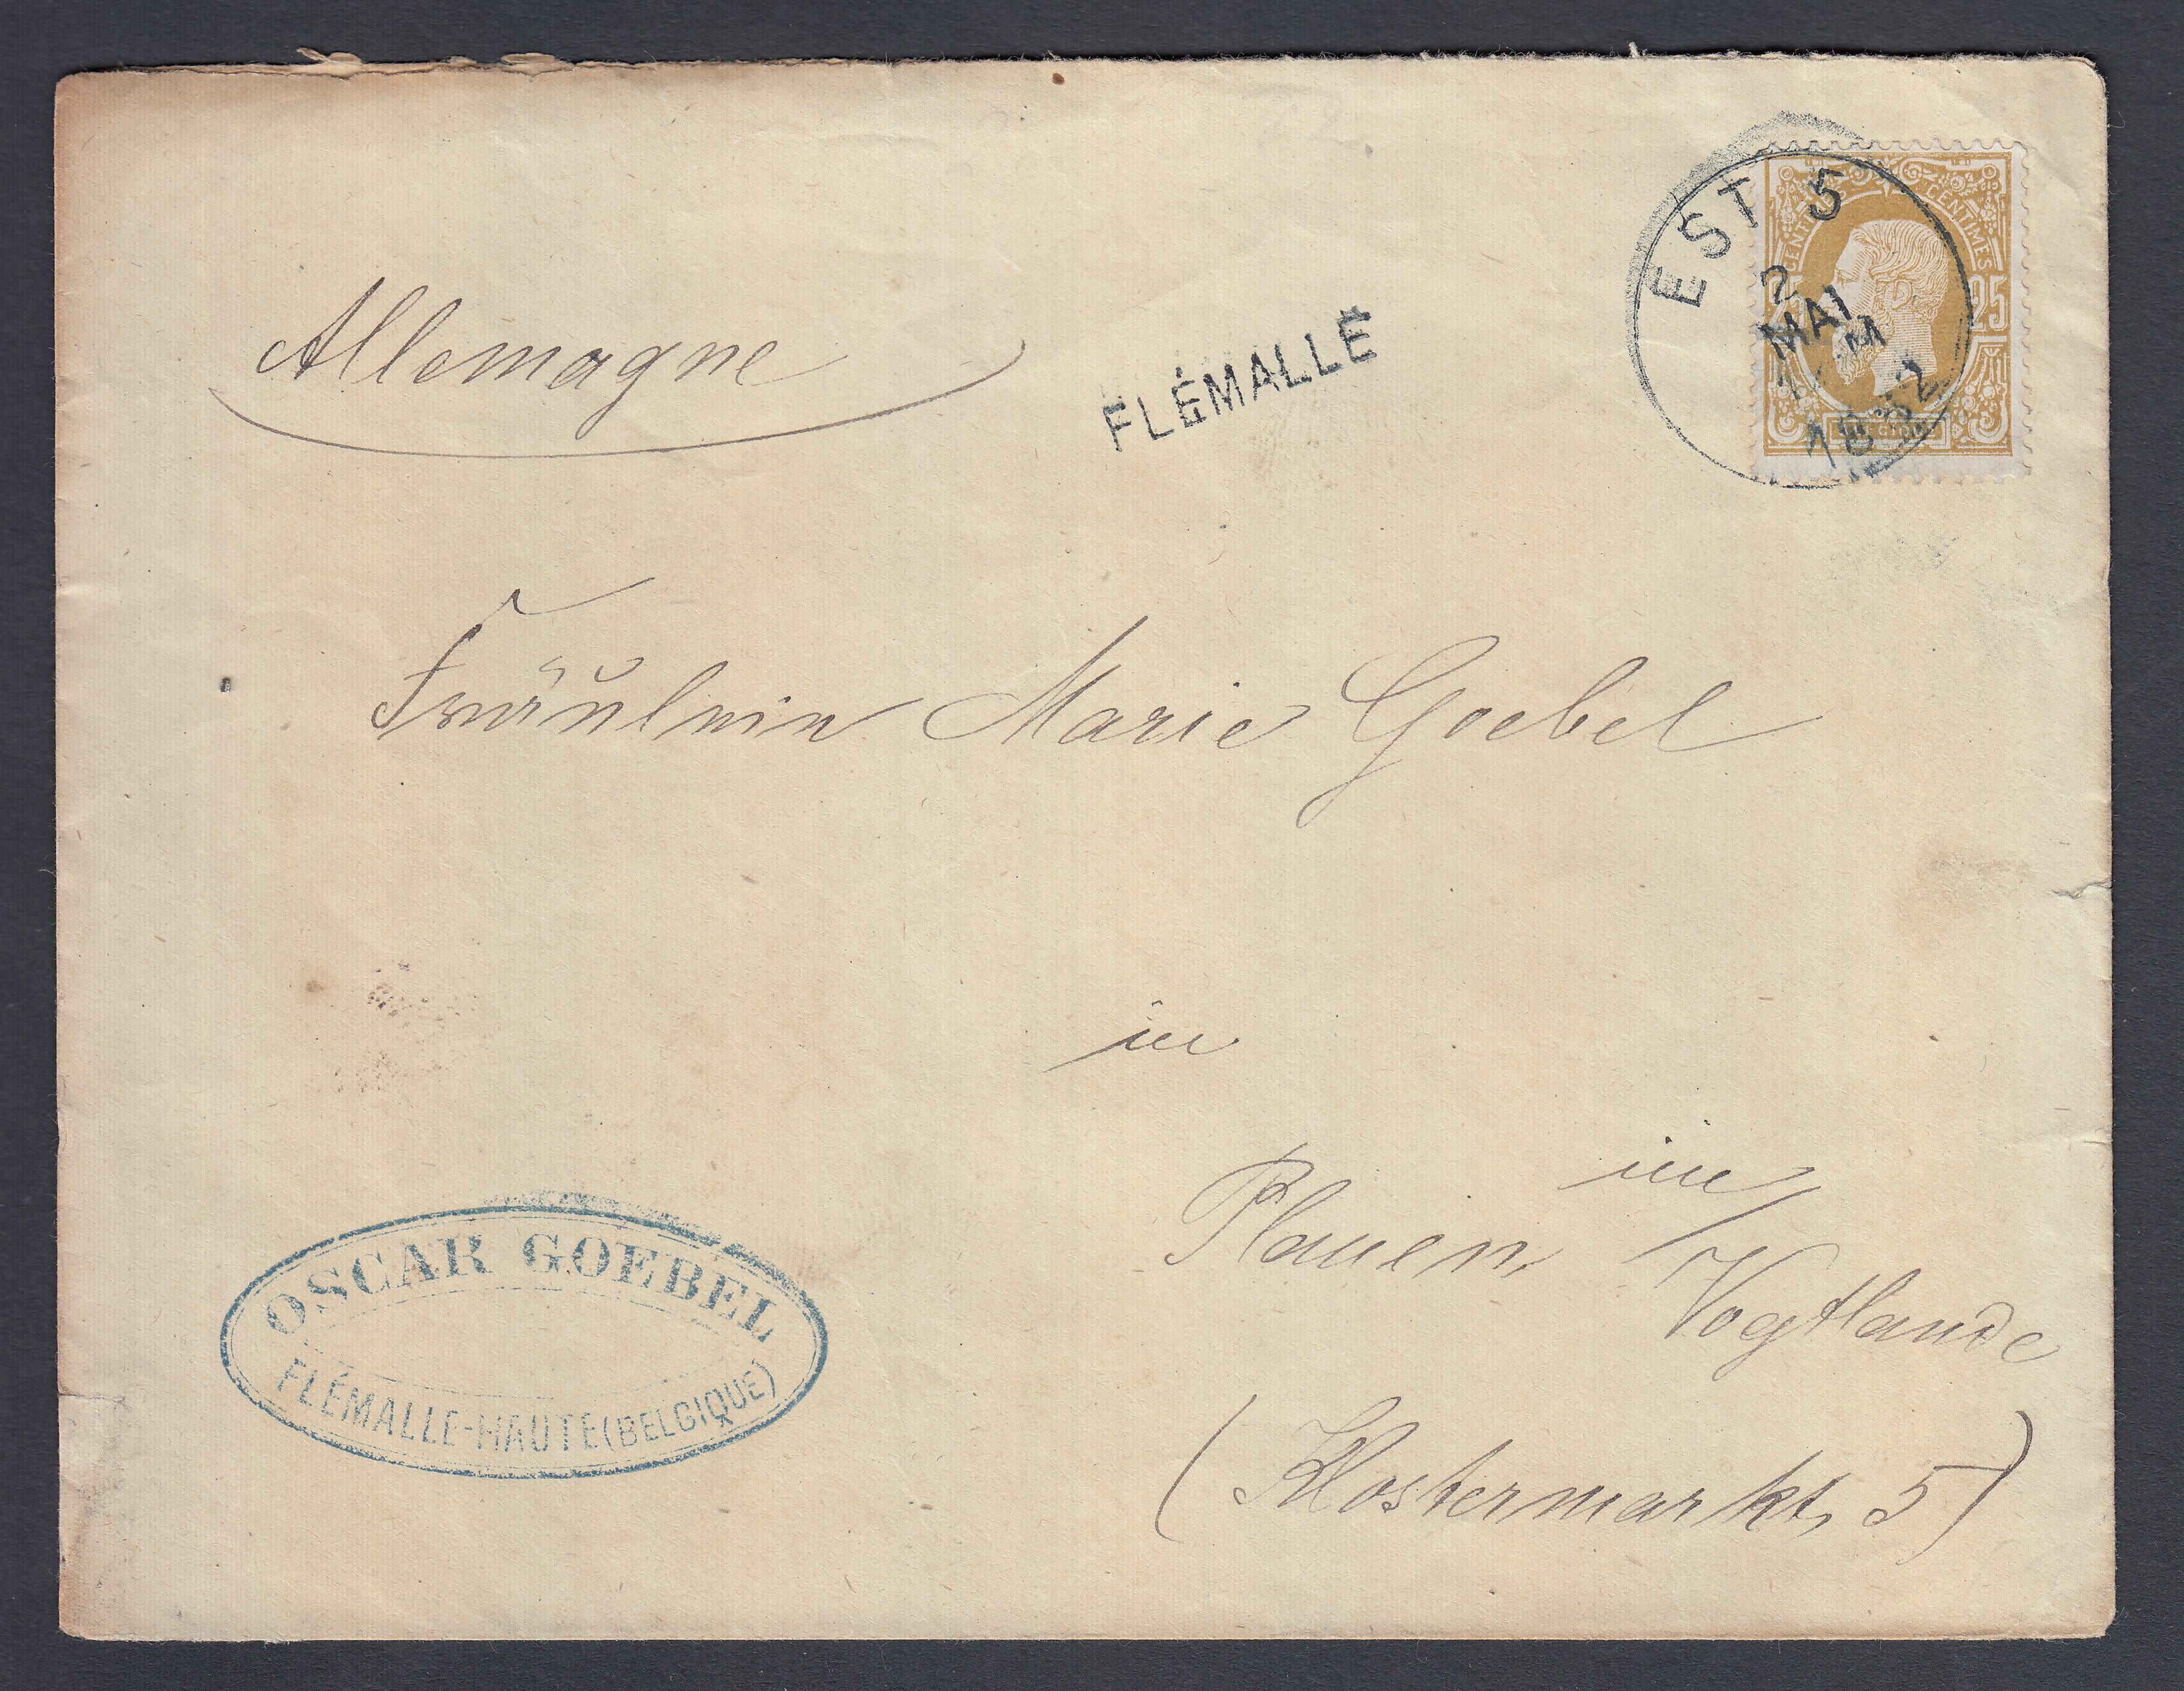 EST 5
2
MAI
M
1882
CENTIMES
25
Allemagne
FLÉMALLE
Fräulein Marie Goebel
in
Plauen, im
Vogtlande
(Klostermarkt, 5)
OSCAR GOEBEL
FLÉMALLE-HAUTE (BELGIQUE)